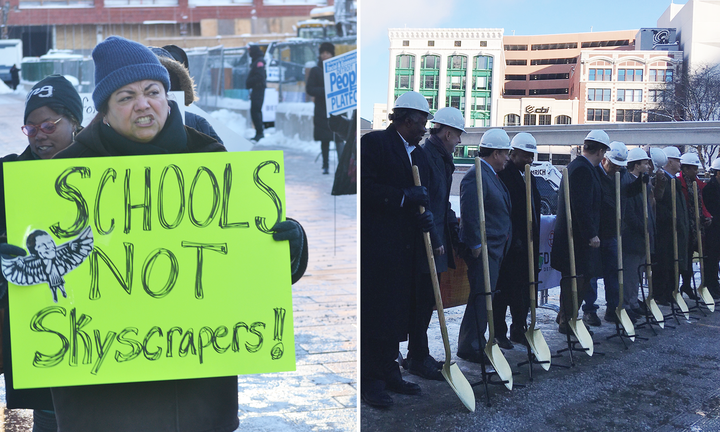 SCHOOLS
NOT
Skyscrapers!
Peop
PLATFO
73